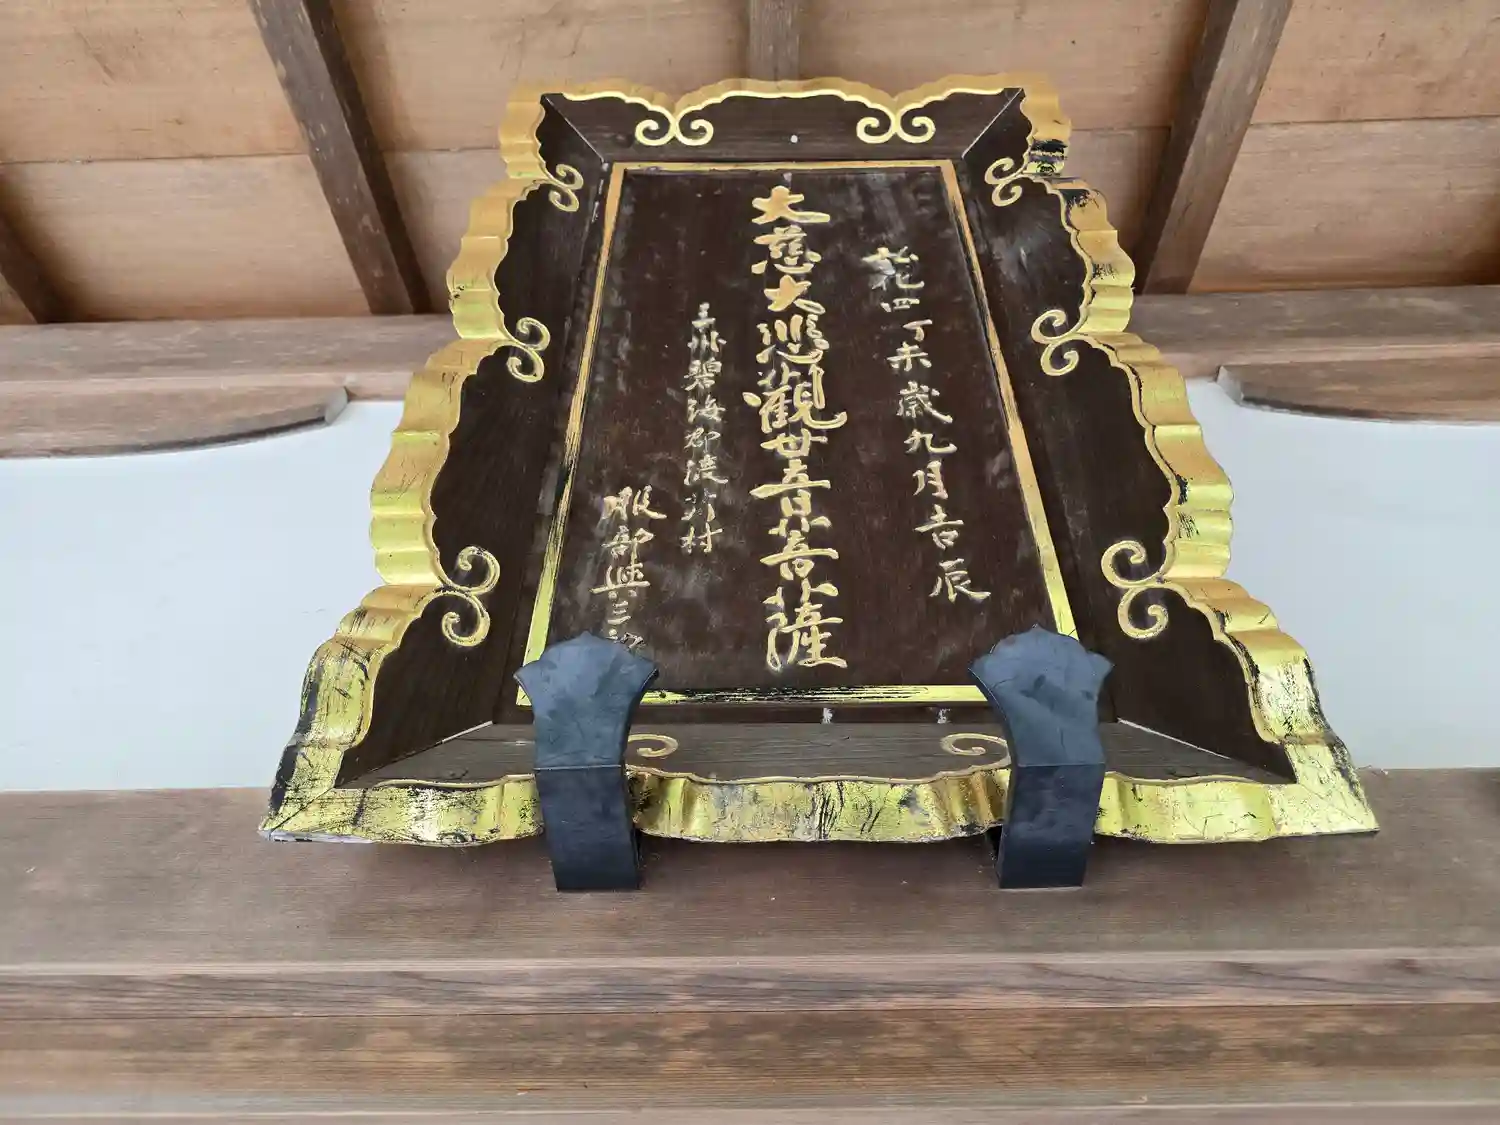 弘化四丁未歳九月吉辰
大慈大悲觀世音菩薩
三州碧海郡渡苅村
服部與三